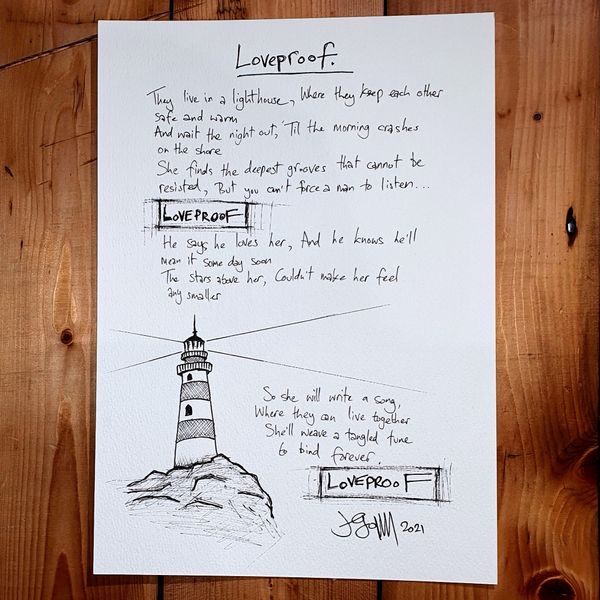 Loveproof.
They live in a lighthouse, Where they keep each other
safe and warm
And wait the night out, 'Til the morning crashes
on the shore
She finds the deepest grooves that cannot be
resisted, But you can't force a man to listen...
LOVEPROOF
He says he loves her, And he knows he'll
mean it some day soon
The stars above her, Couldn't make her feel
any smaller
So she will write a song,
Where they can live together
She'll weave a tangled tune
to bind forever.
LOVEPROOF
2021